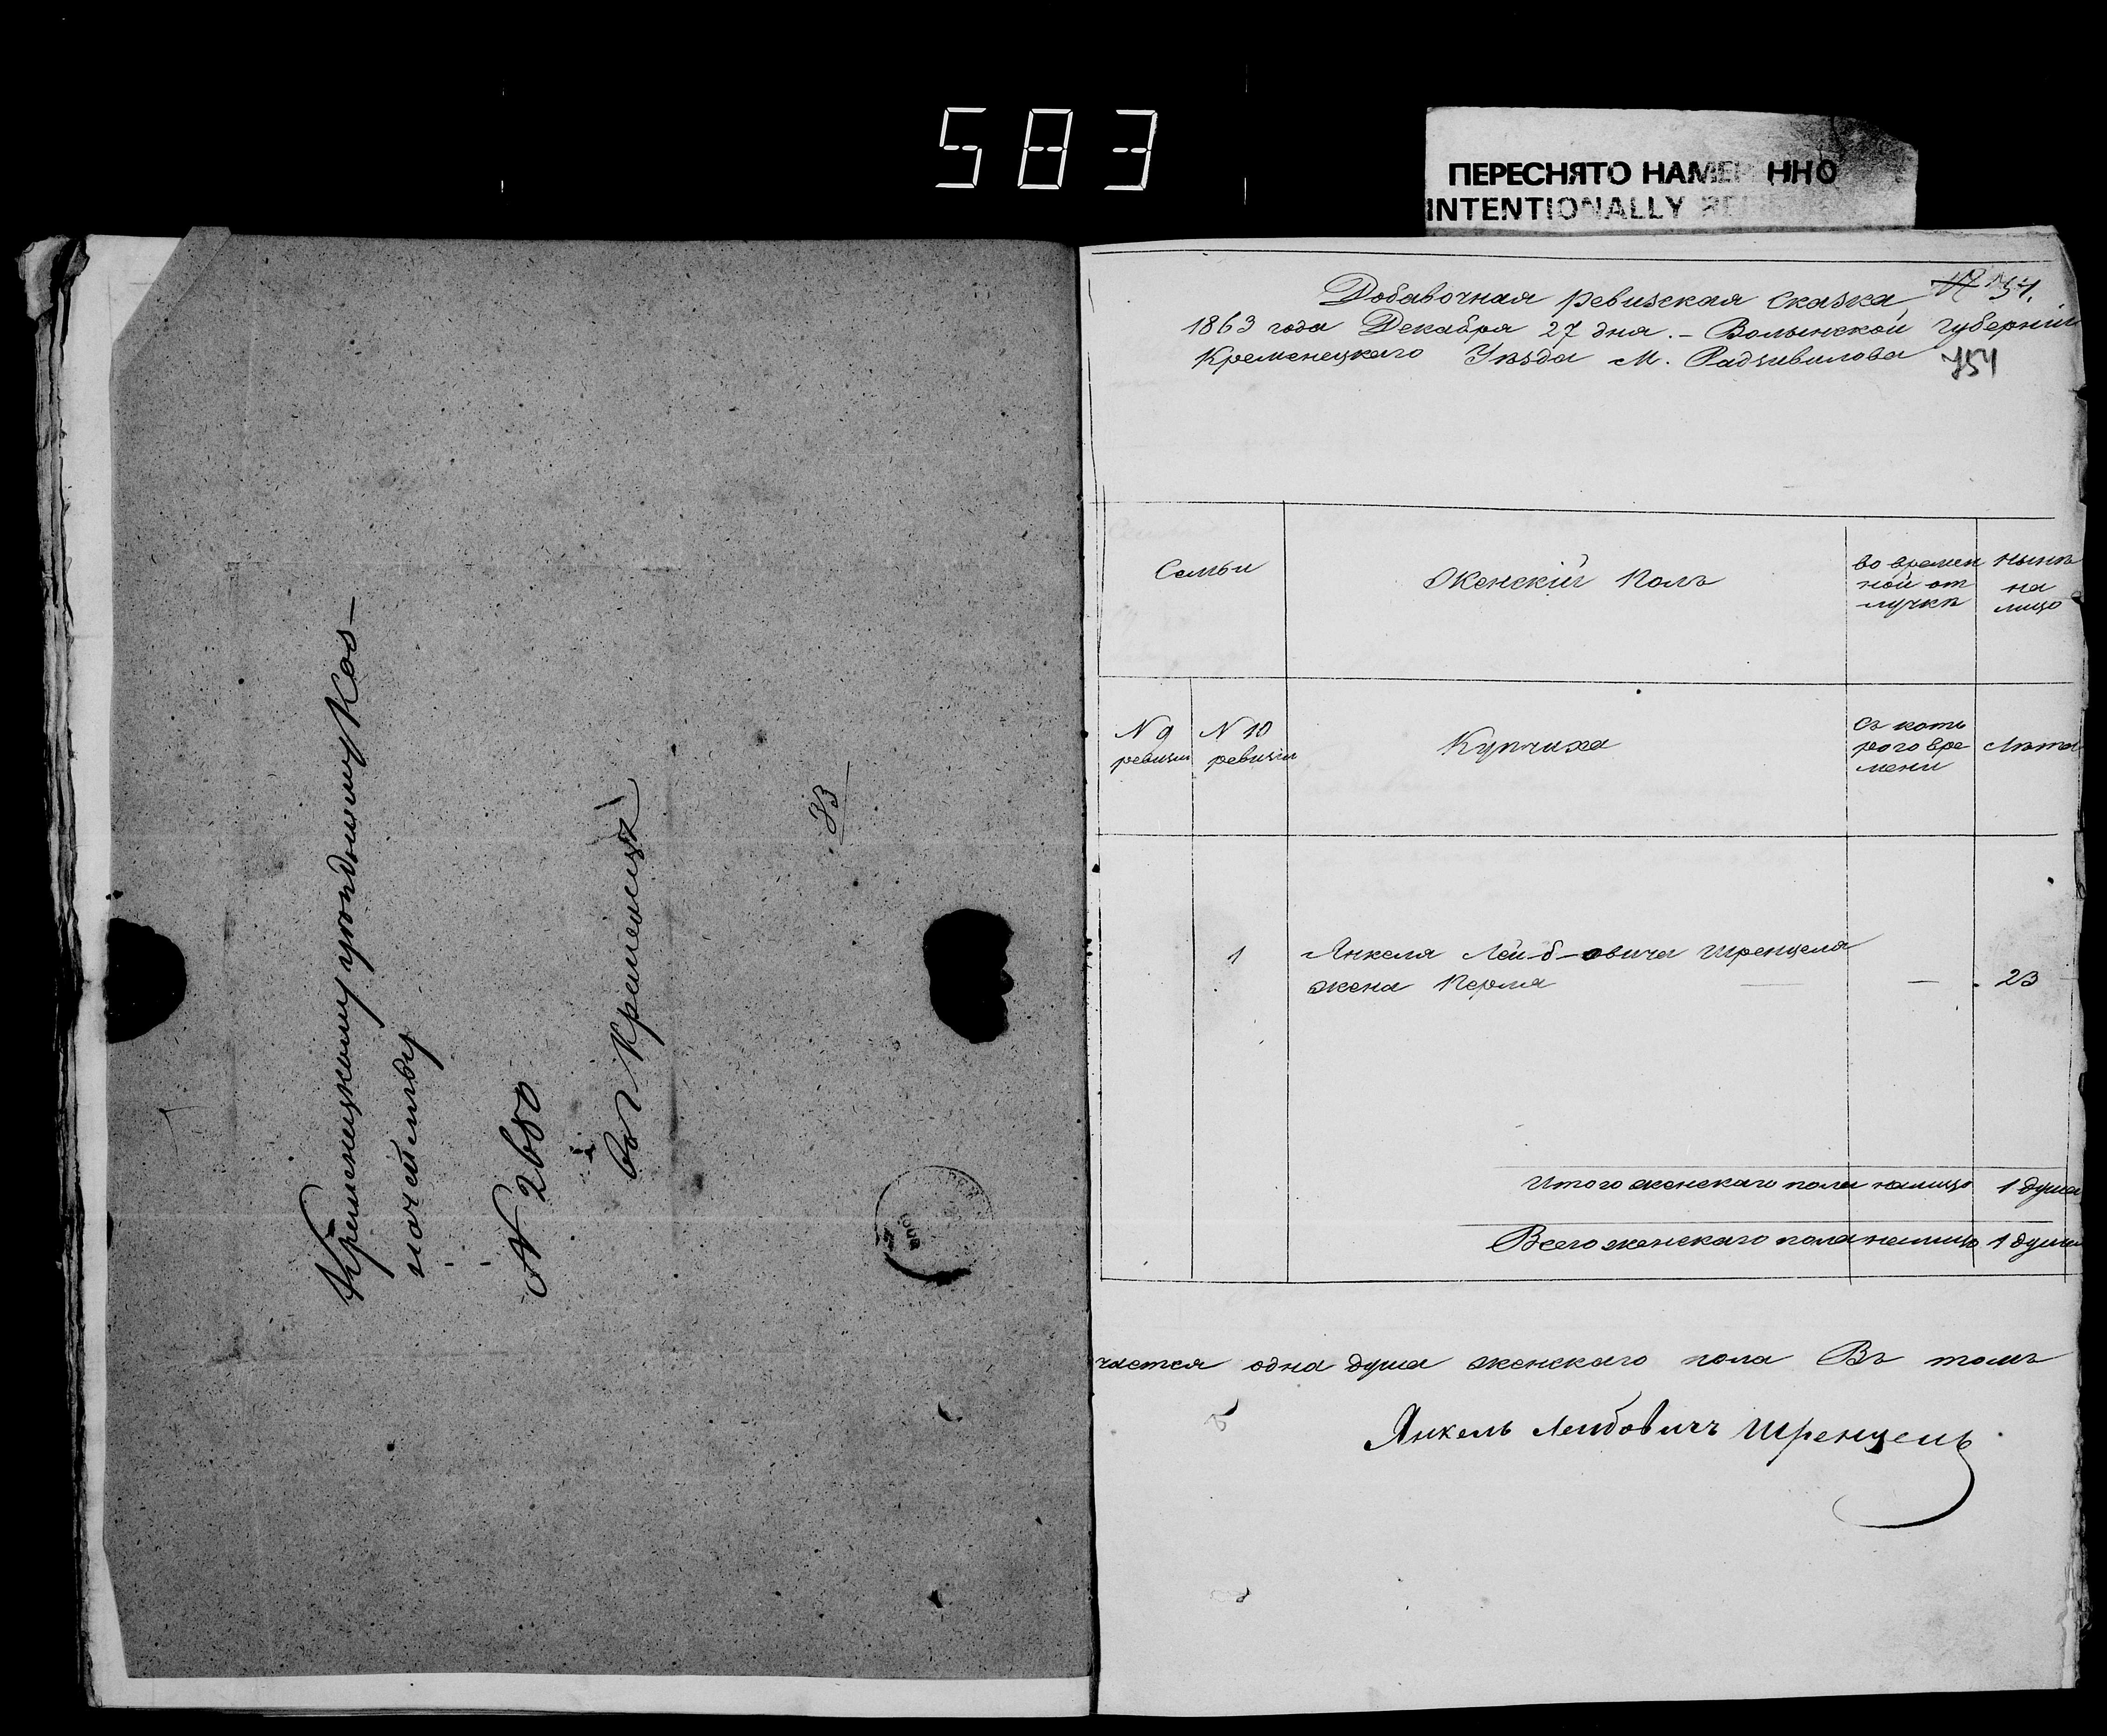 583
ПЕРЕСНЯТО НАМЕРЕННО
INTENTIONALLY
Кременецкому уѣздному Каз-
начейству
№ 2680
въ г Кременецъ
Добавочная ревизская сказка
1863 года Декабря 27 дня. – Волынской губерніи
Кременецкаго Уѣзда м. Радзивилова
754
Семьи
Женскій Полъ
во времен
ной от
лучкѣ
нынѣ
на
лицо
N 9
ревизіи
N 10
ревизіи
Купчиха
Съ кото
рого вре
мени
Лѣта
1
Янкеля Лей-б-овича Шренцеля
жена Перля — — 23
Итого женскаго пола налицо 1 душа
Всего женскаго пола налицо 1 душа
чается одна душа женскаго пола Въ томъ
Янкель Лейбовичъ Шренцель